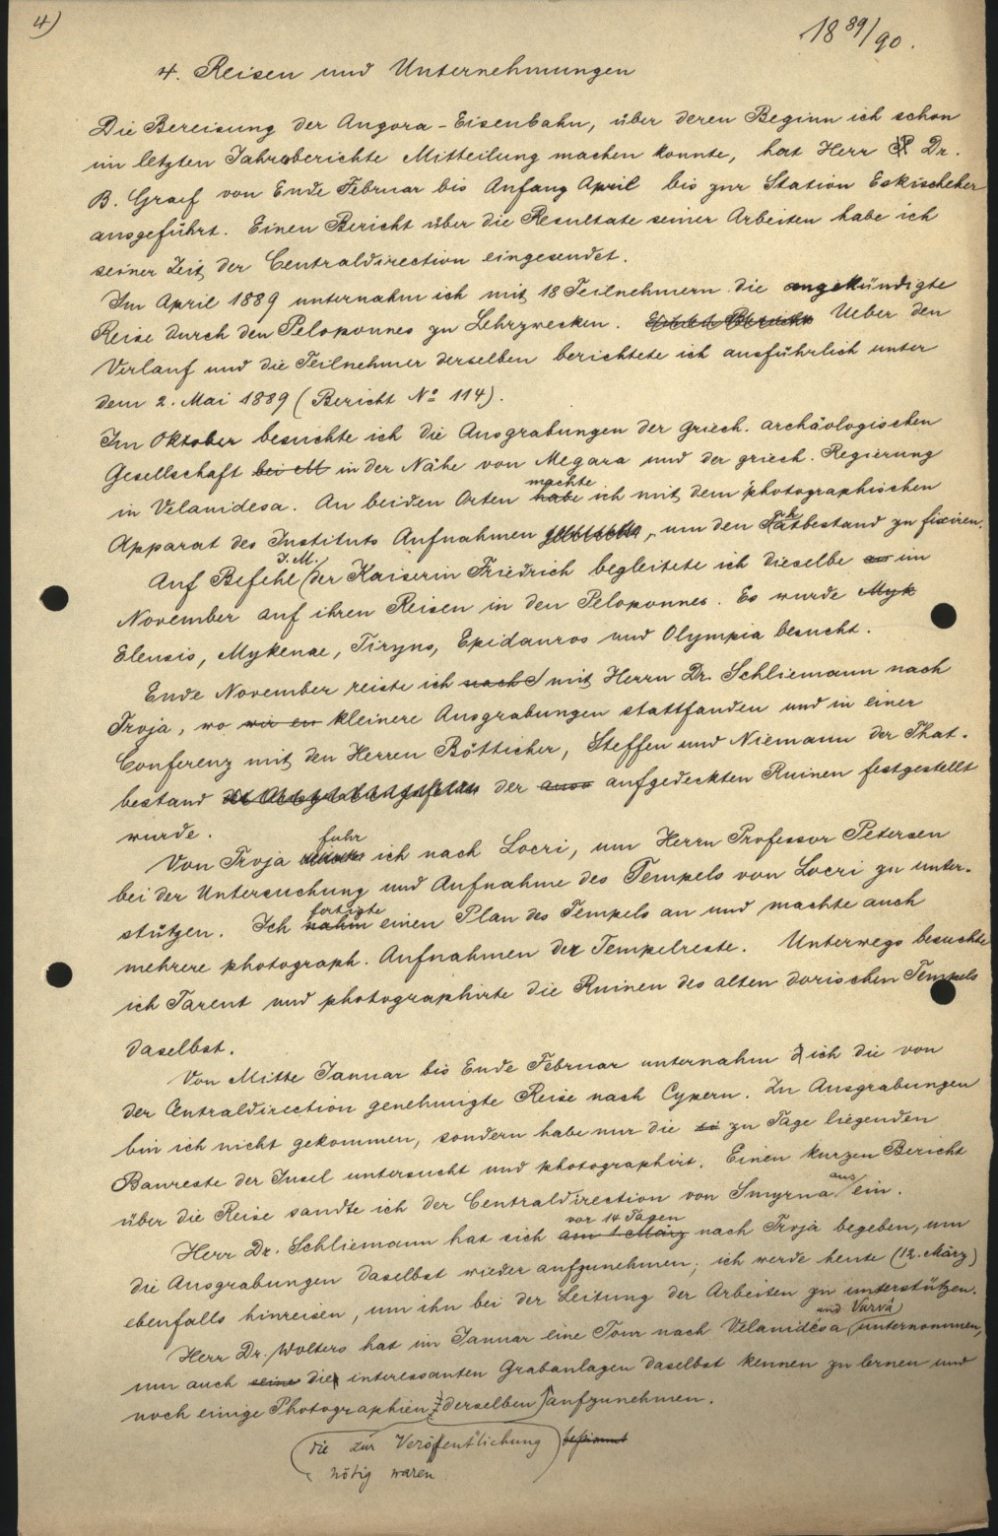 4)
1889/90.
4. Reisen und Unternehmungen
Die Bereisung der Angora-Eisenbahn, über deren Beginn ich schon
im letzten Jahresberichte Mitteilung machen konnte, hat Herr Dr.
B. Graef von Ende Februar bis Anfang April bis zur Station Eskischeher
ausgeführt. Einen Bericht über die Resultate seiner Arbeiten habe ich
seiner Zeit der Centraldirection eingesendet.
Im April 1889 unternahm ich mit 18 Teilnehmern die angekündigte
Reise durch den Peloponnes zu Lehrzwecken. Ueber den
Verlauf und die Teilnehmer derselben berichtete ich ausführlich unter
dem 2. Mai 1889 (Bericht No 114).
Im Oktober besuchte ich die Ausgrabungen der griech. archäologischen
Gesellschaft bei M in der Nähe von Megara und der griech. Regierung
machte
in Velanidesa. An beiden Orten habe ich mit dem photographischen
Apparat des Instituts Aufnahmen, um den Thatbestand zu fixiren.
I. M.
Auf Befehl der Kaiserin Friedrich begleitete ich dieselbe im
November auf ihren Reisen in den Peloponnes. Es wurde Myk
Eleusis, Mykenae, Tiryns, Epidauros und Olympia besucht.
Ende November reiste ich nach S mit Herrn Dr. Schliemann nach
Troja, wo wir en kleinere Ausgrabungen stattfanden und in einer
Conferenz mit den Herren Bötticher, Steffen und Niemann der That-
bestand der aufgedeckten Ruinen festgestellt
wurde.
fuhr
Von Troja ich nach Locri, um Herrn Professor Petersen
bei der Untersuchung und Aufnahme des Tempels von Locri zu unter-
fertigte
stützen. Ich nahm einen Plan des Tempels an und machte auch
mehrere photograph. Aufnahmen der Tempelreste. Unterwegs besuchte
ich Tarent und photographirte die Ruinen des alten dorischen Tempels
daselbst.
Von Mitte Januar bis Ende Februar unternahm ich die von
der Centraldirection genehmigte Reise nach Cypern. Zu Ausgrabungen
bin ich nicht gekommen, sondern habe nur die zu Tage liegenden
Baureste der Insel untersucht und photographirt. Einen kurzen Bericht
aus
über die Reise sandte ich der Centraldirection von Smyrna ein.
vor 14 Tagen
Herr Dr. Schliemann hat sich am 1 März nach Troja begeben, um
die Ausgrabungen daselbst wieder aufzunehmen; ich werde heute (12. März)
ebenfalls hinreisen, um ihn bei der Leitung der Arbeiten zu unterstützen.
und Varvá
Herr Dr. Wolters hat im Januar eine Tour nach Velanidésa unternommen,
um auch seine die interessanten Grabanlagen daselbst kennen zu lernen und
noch einige Photographien derselben aufzunehmen.
die zur Veröffentlichung bestimmt
nötig waren